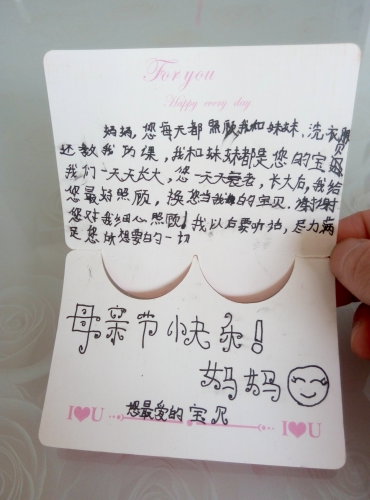 For you
Happy every day
妈妈,您每天都照顾我和妹妹、洗衣服
还教我功课,我和妹妹都是您的宝贝
我们一天天长大,您一天天衰老,长大后,我给
您最好照顾,换您当我的宝贝.谢谢
您对我细心照顾!我以后要听话,尽力满
足您所想要的一切
母亲节快乐!
妈妈
您最爱的宝贝
I♥U I♥U